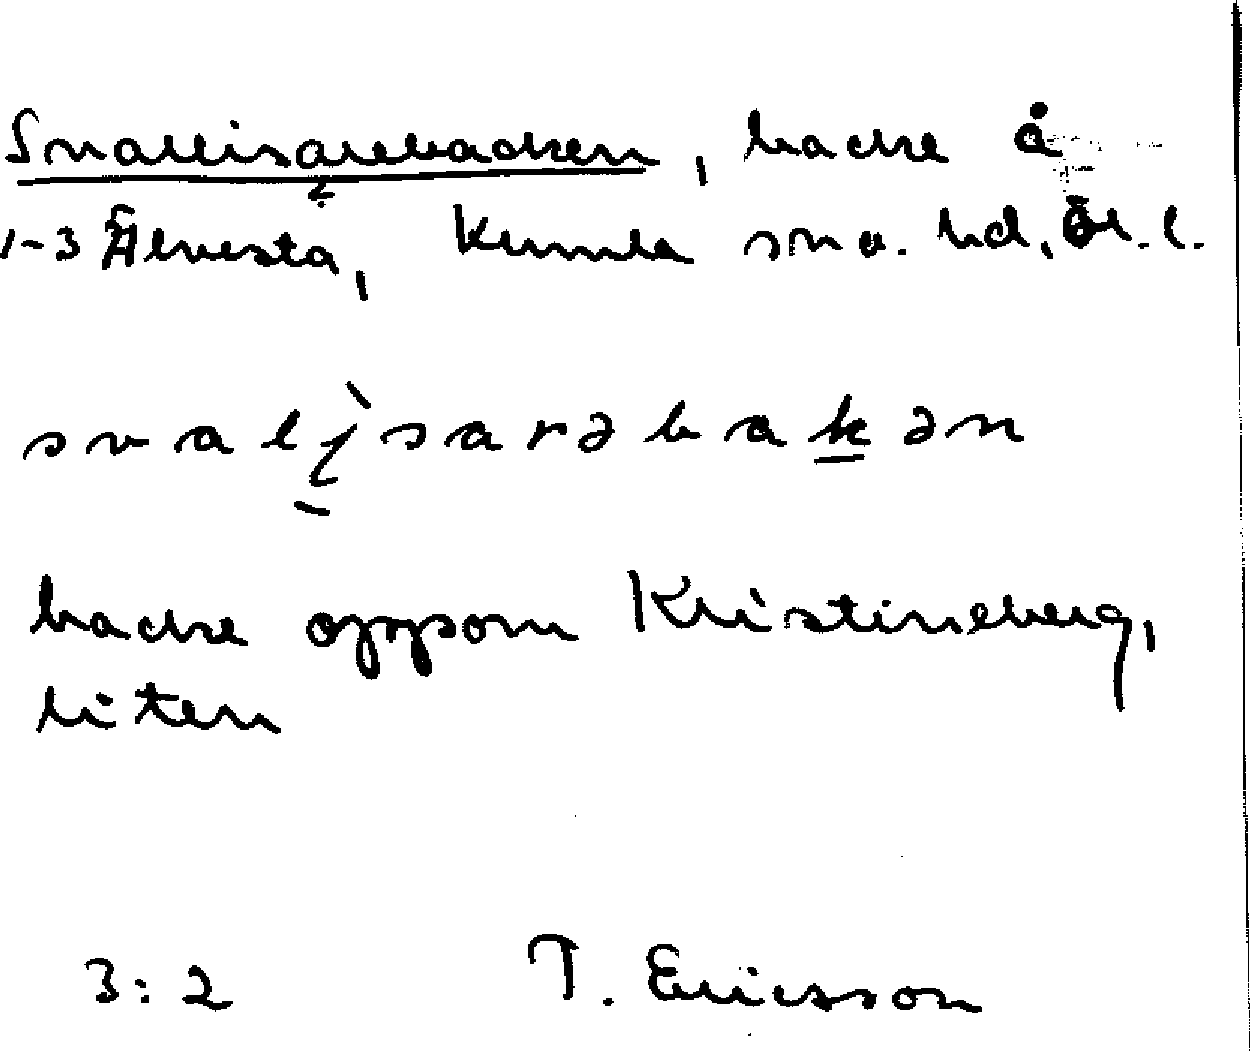 Svallisarebacken, backe å
1-3 Älvesta, Kumla sn o. hd, Ör. l.
svalisarəbakən
backe oppom Kristineberg,
liten
3:2 T. Ericsson